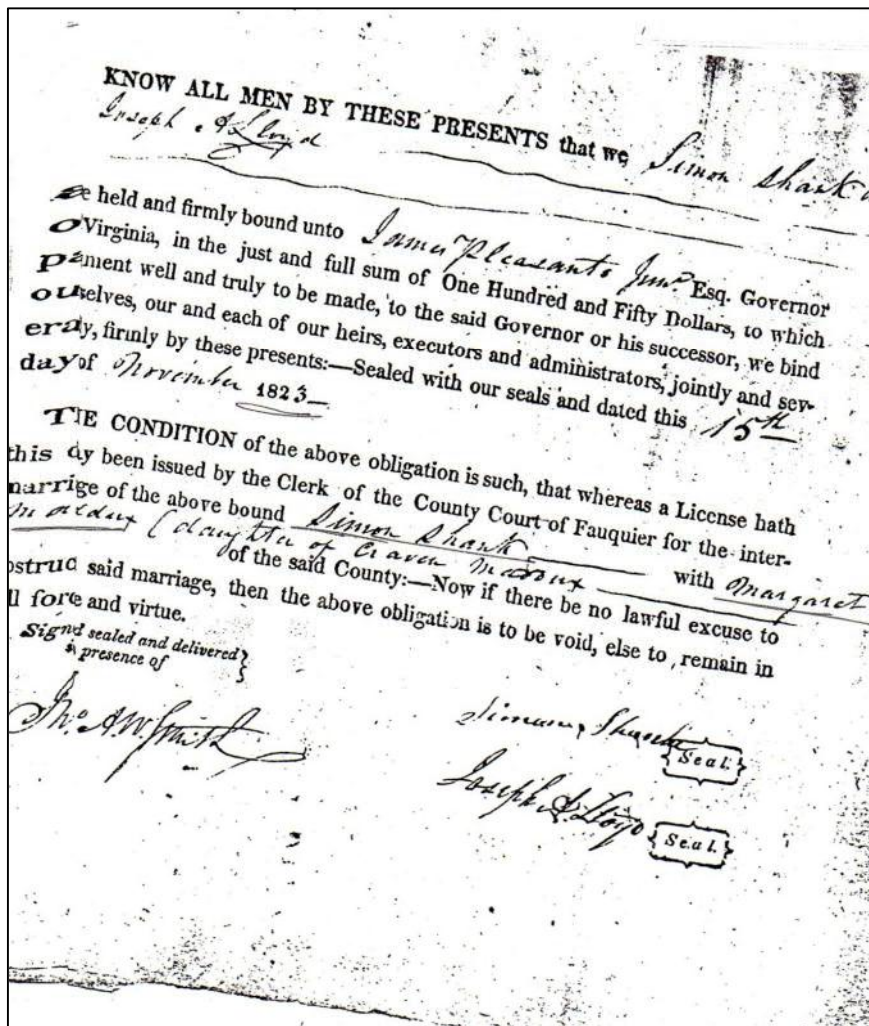 KNOW ALL MEN BY THESE PRESENTS that we, Simon Shank
Joseph A Lloyd
be held and firmly bound unto James Pleasants Junr. Esq. Governor
o Virginia, in the just and full sum of One Hundred and Fifty Dollars, to which
pament well and truly to be made, to the said Governor or his successor, we bind
ouselves, our and each of our heirs, executors and administrators, jointly and sev-
eraly, firmly by these presents:—Sealed with our seals and dated this 15th
day of November 1823—
THE CONDITION of the above obligation is such, that whereas a License hath
this dy been issued by the Clerk of the County Court of Fauquier for the inter-
marrige of the above bound Simon Shank with Margaret
Maddux (daughter of Craven Maddux
of the said County:—Now if there be no lawful excuse to
ostruc said marriage, then the above obligation is to be void, else to remain in
ll force and virtue.
Signd sealed and delivered }
presence of
Tho. A W Smith
Simon Shank Seal.
Joseph A. Lloyd Seal.